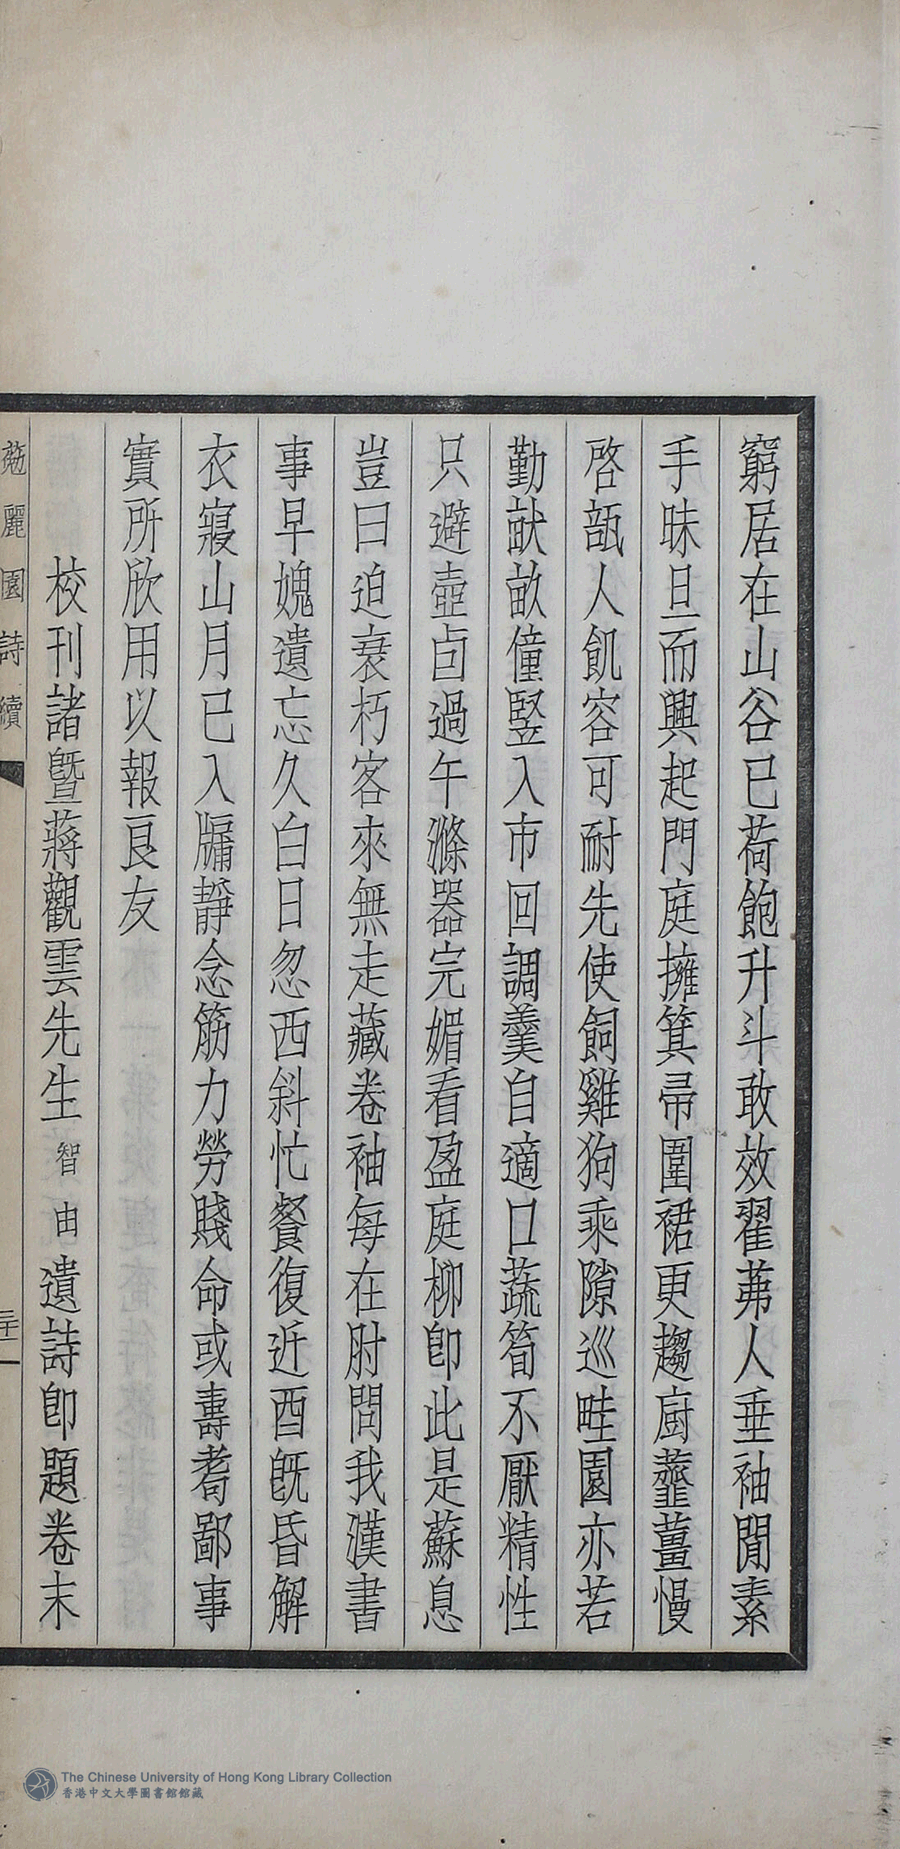 窮居在山谷已荷飽升斗敢效翟茀人垂袖閒素
手昧旦而興起門庭擁箕帚圍裙更趨廚虀薑慢
啓瓿人飢容可耐先使飼雞狗乘隙巡畦園亦若
勤畎畝僮豎入市回調羹自適口蔬筍不厭精性
只避壺卣過午滌器完媚看盈庭柳卽此是蘇息
豈曰迫衰朽客來無走藏卷袖每在肘問我漢書
事早媿遺忘久白日忽西斜忙餐復近酉旣昏解
衣寢山月已入牖靜念筋力勞賤命或壽耇鄙事
實所欣用以報良友
校刊諸暨蔣觀雲先生智由遺詩卽題卷末
菿麗園詩續
二十一
The Chinese University of Hong Kong Library Collection
香港中文大學圖書館館藏